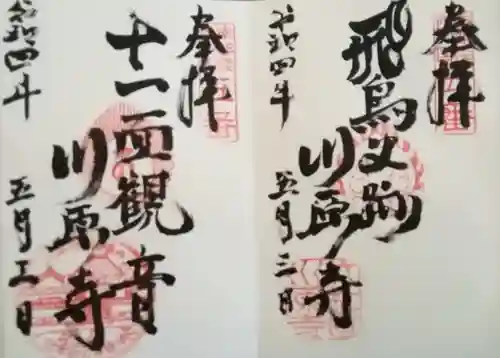 奉拝
飛鳥史跡
川原寺
令和四年
五月三日
奉拝
十一面観音
川原寺
令和四年
五月三日